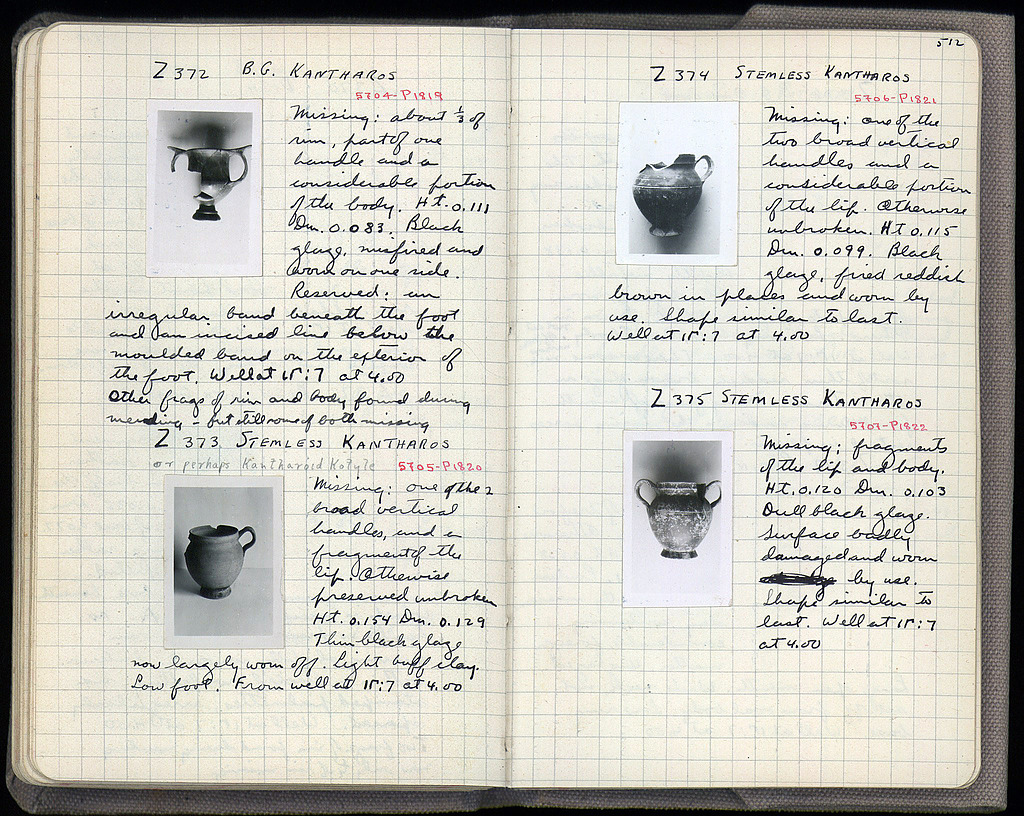 Z 372 B.G. KANTHAROS
5704-P1819
Missing: about 1/3 of
rim, part of one
handle and a
considerable portion
of the body. Ht. 0.111
Dm. 0.083. Black
glaze, misfired and
worn on one side.
Reserved: an
irregular band beneath the foot
and an incised line below the
moulded band on the exterior of
the foot. Well at ΙΓ:7 at 4.00
Other frags of rim and body found during
mending - but still some of both missing
Z 373 STEMLESS KANTHAROS
or perhaps Kantharoid Kotyle 5705-P1820
Missing: one of the 2
broad vertical
handles, and a
fragment of the
lip. Otherwise
preserved unbroken
Ht. 0.154 Dm. 0.129
Thin black glaze
now largely worn off. Light buff clay.
Low foot. From well at ΙΓ:7 at 4.00
512
Z 374 STEMLESS KANTHAROS
5706-P1821
Missing: one of the
two broad vertical
handles and a
considerable portion
of the lip. Otherwise
unbroken. HT 0.115
Dm. 0.099. Black
glaze, fired reddish
brown in places and worn by
use. Shape similar to last.
Well at ΙΓ:7 at 4.00
Z 375 STEMLESS KANTHAROS
5707-P1822
Missing; fragments
of the lip and body.
Ht. 0.120 Dm. 0.103
Dull black glaze.
Surface badly
damaged and worn
by use.
Shape similar to
last. Well at ΙΓ:7
at 4.00